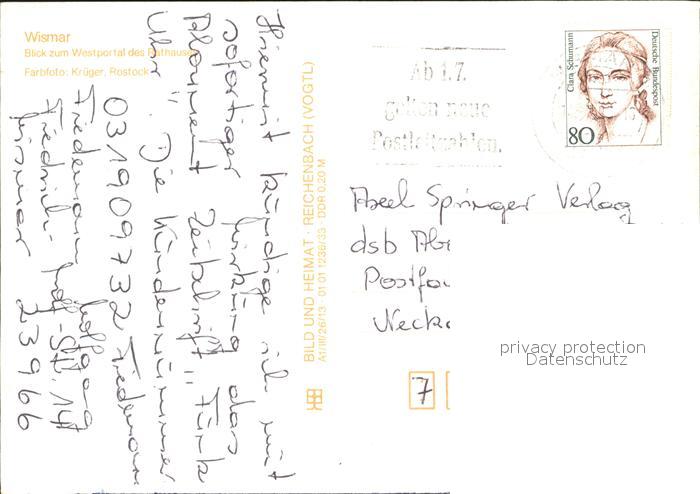 Wismar
Blick zum Westportal des Rathauses
Farbfoto: Krüger, Rostock
Hiermit kündige ich mit
sofortiger Wirkung das
Abonnement Zeitschrift "Funk
Uhr". Die Kundennummer
03190973 2 Friedemann
Friedemann Wolfgang
Friedrich-Wolf-Str. 14
Wismar 23966
BILD UND HEIMAT · REICHENBACH (VOGTL)
A1/III/26/13 · 01 01 1236/33 · DDR 0,20 M
Ab 1.7.
gelten neue
Postleitzahlen.
Clara Schumann
Deutsche Bundespost
80
Axel Springer Verlag
dsb
7
privacy protection
Datenschutz